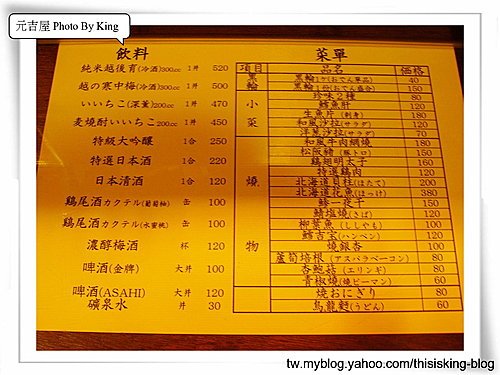 元吉屋 Photo By King
飲料
純米越後育(冷酒)300.cc 1井 520
越の寒中梅(冷酒)300.cc 1井 500
いいちこ(深薰)200.cc 1井 470
麦焼酎いいちこ200.cc 1井 450
特級大吟釀 1合 250
特選日本酒 1合 220
日本清酒 1合 120
鷄尾酒カクテル(葡萄柚) 缶 100
鷄尾酒カクテル(水蜜桃) 缶 100
濃醇梅酒 杯 120
啤酒(金牌) 大井 100
啤酒(ASAHI) 大井 120
礦泉水 井 30
菜單
項目 品名 價格
黑輪 黑輪1ケ(おでん單品) 40
黑輪1份(おでん盛合) 150
小菜 珍味2種 80
鱈魚肝 120
生魚片(刺身) 180
和風沙拉(サラダ) 120
洋葱沙拉(サラダ) 70
燒物 和風牛肉網燒 180
松阪豬(豚トロ) 150
鷄翅明太子 160
特選鷄肉 120
北海道貝柱(ほたて) 200
北海道花魚(ほっけ) 380
鯵一夜干 150
鯖塩燒(さば) 120
柳葉魚(ししゃも) 100
鱈吉宝(ハンペン) 120
燒銀杏 100
蘆筍培根(アスパラベーコン) 80
杏鮑菇(エリンギ) 80
青椒燒(燒ピーマン) 60
燒おにぎり 80
烏龍麵(うどん) 60
tw.myblog.yahoo.com/thisisking-blog